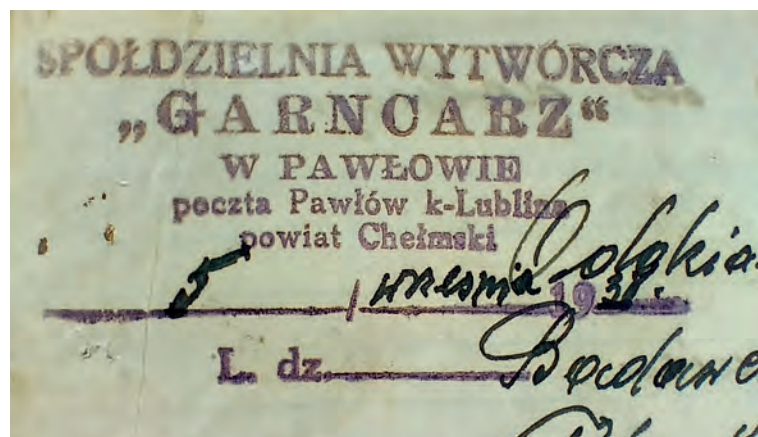 SPÓŁDZIELNIA WYTWÓRCZA
„GARNCARZ“
W PAWŁOWIE
poczta Pawłów k-Lublina
powiat Chełmski
5 / września 1938.
L. dz.